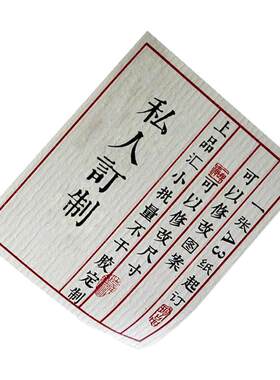 一张A3纸起订
可以修改图案
可以修改尺寸
上品汇小批量不干胶定制
私人訂制